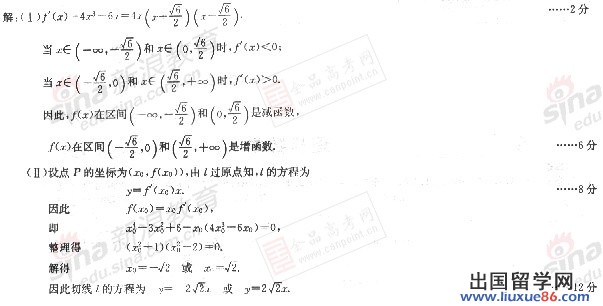 解:(Ⅰ)f′(x)=4x³-6x=4x(x+√6/2)(x-√6/2). ……2分
当x∈(-∞,-√6/2)和x∈(0,√6/2)时,f′(x)<0;
当x∈(-√6/2,0)和x∈(√6/2,+∞)时,f′(x)>0.
因此,f(x)在区间(-∞,-√6/2)和(0,√6/2)是减函数,
f(x)在区间(-√6/2,0)和(√6/2,+∞)是增函数. ……6分
(Ⅱ)设点P的坐标为(x₀,f(x₀)),由l过原点知,l的方程为
y=f′(x₀)x. ……8分
因此 f(x₀)=x₀f′(x₀),
即 x₀⁴-3x₀²+6-x₀(4x₀³-6x₀)=0,
整理得 (x₀²+1)(x₀²-2)=0.
解得 x₀=-√2 或 x₀=√2.
因此切线l的方程为 y=-2√2x 或 y=2√2x. 12分
出国留学网
www.liuxue86.com